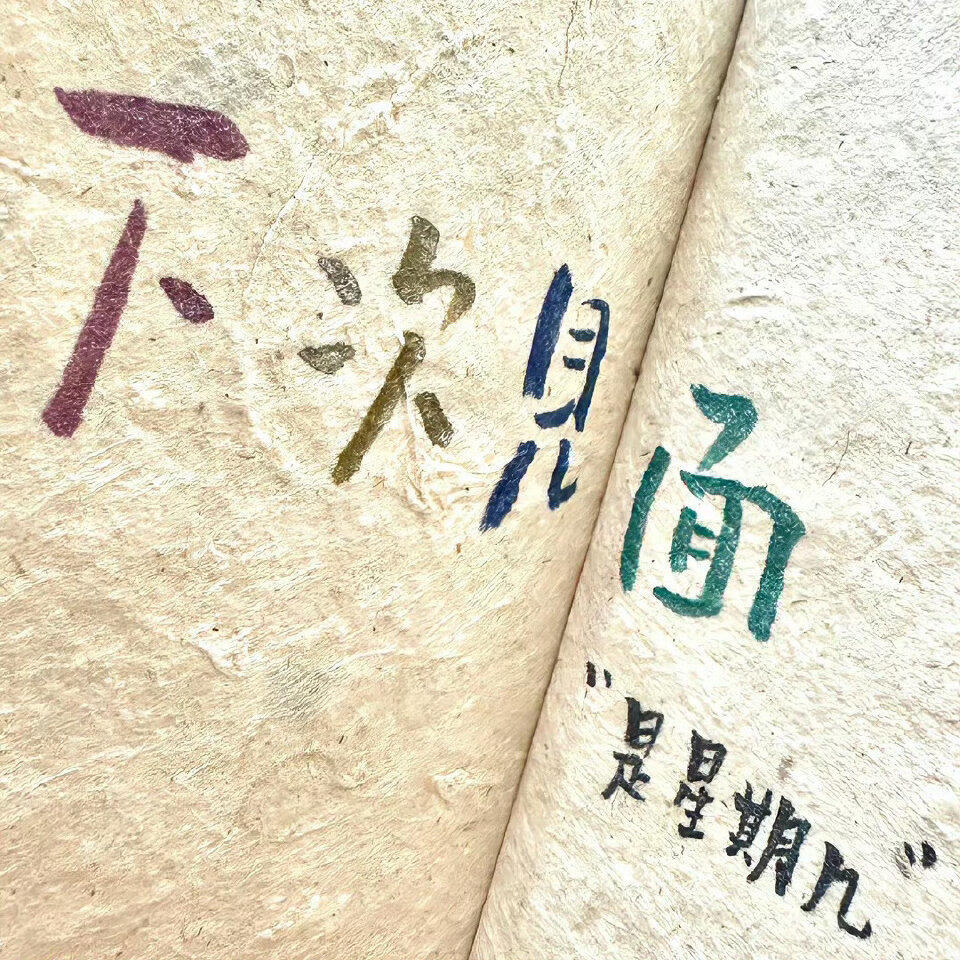 下次見面
"是星期几"